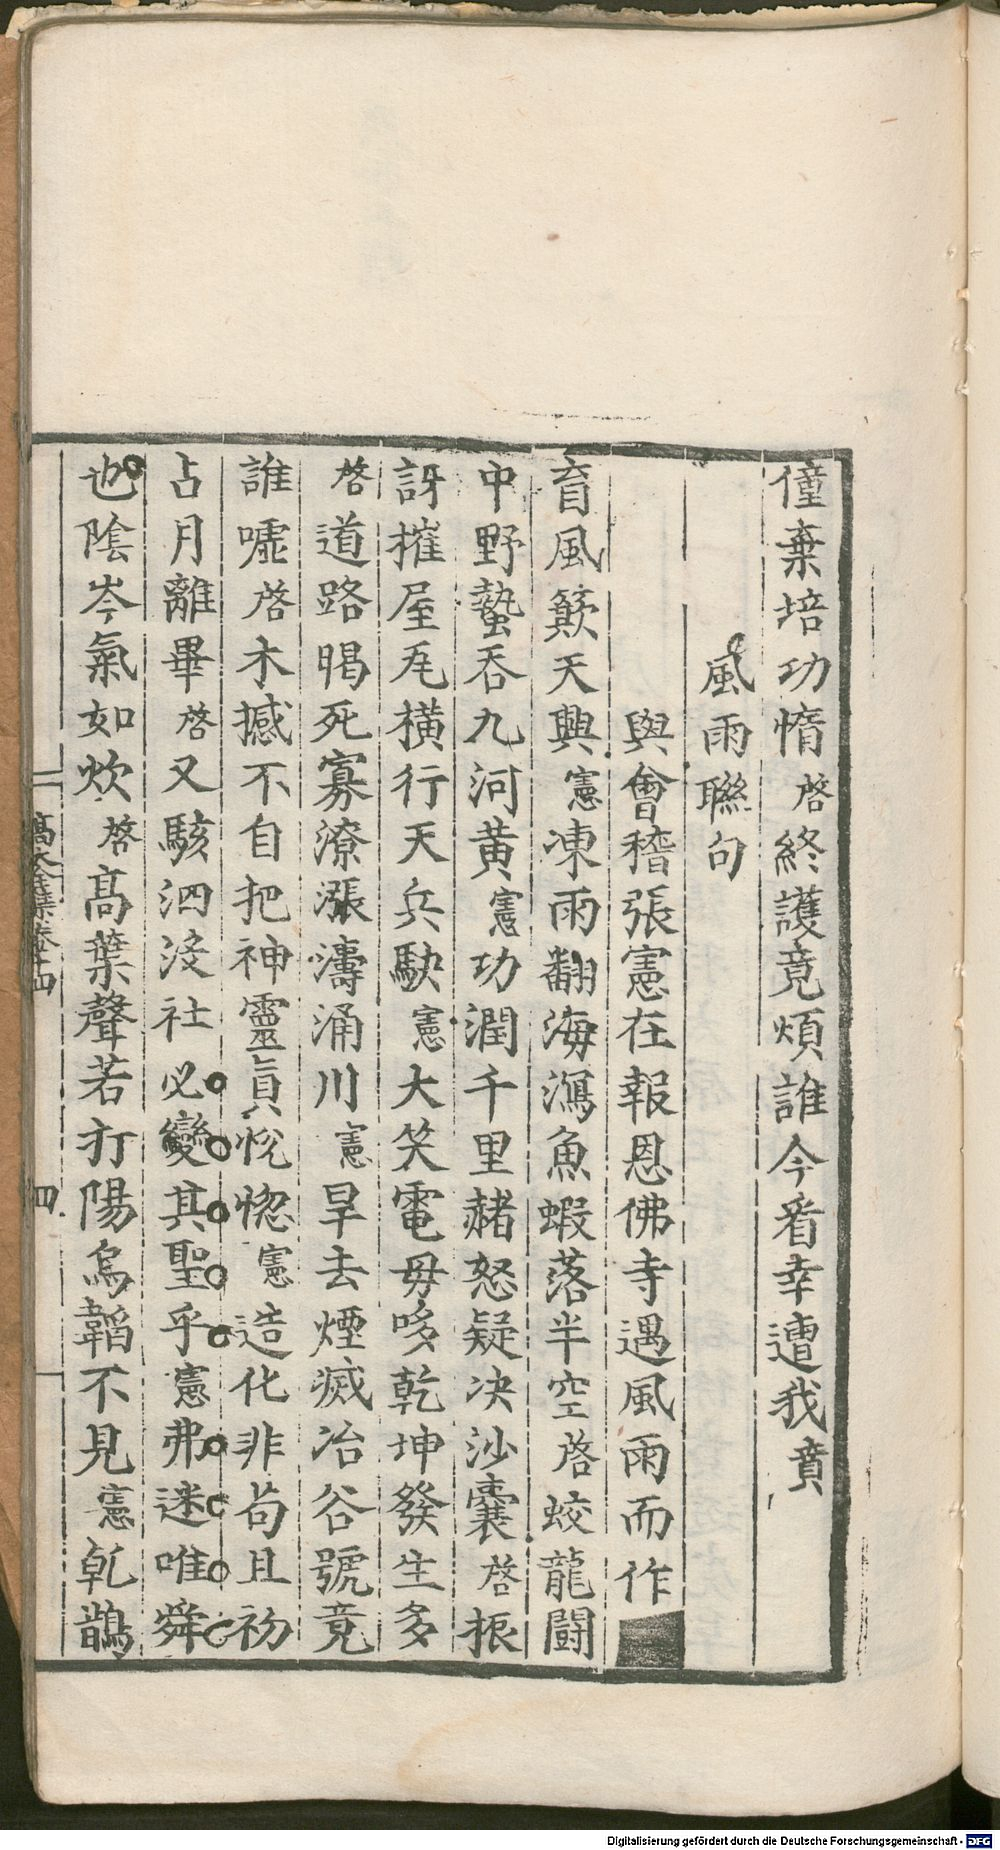 僮棄培功惰啓終護竟煩誰今看幸遭我賁
風雨聯句
與會稽張憲在報恩佛寺遇風雨而作
育風簸天興憲凍雨翻海瀉魚蝦落半空啓蛟龍闘
中野蟄吞九河黃憲功潤千里赭怒疑决沙囊啓振
訝摧屋㡯橫行天兵駃憲大笑電毋哆乾坤發生多
啓道路暍死寡潦漲濤涌川憲旱去煙滅冶谷號竟
誰嘘啓木撼不自把神靈眞恍惚憲造化非苟且初
占月離畢啓又駭泗没社必變其聖乎憲弗迷唯舜
也陰岑氣如炊啓高葉聲若打陽烏韜不見憲乹鵲
高太全集卷十四
四
Digitalisierung gefördert durch die Deutsche Forschungsgemeinschaft - DFG